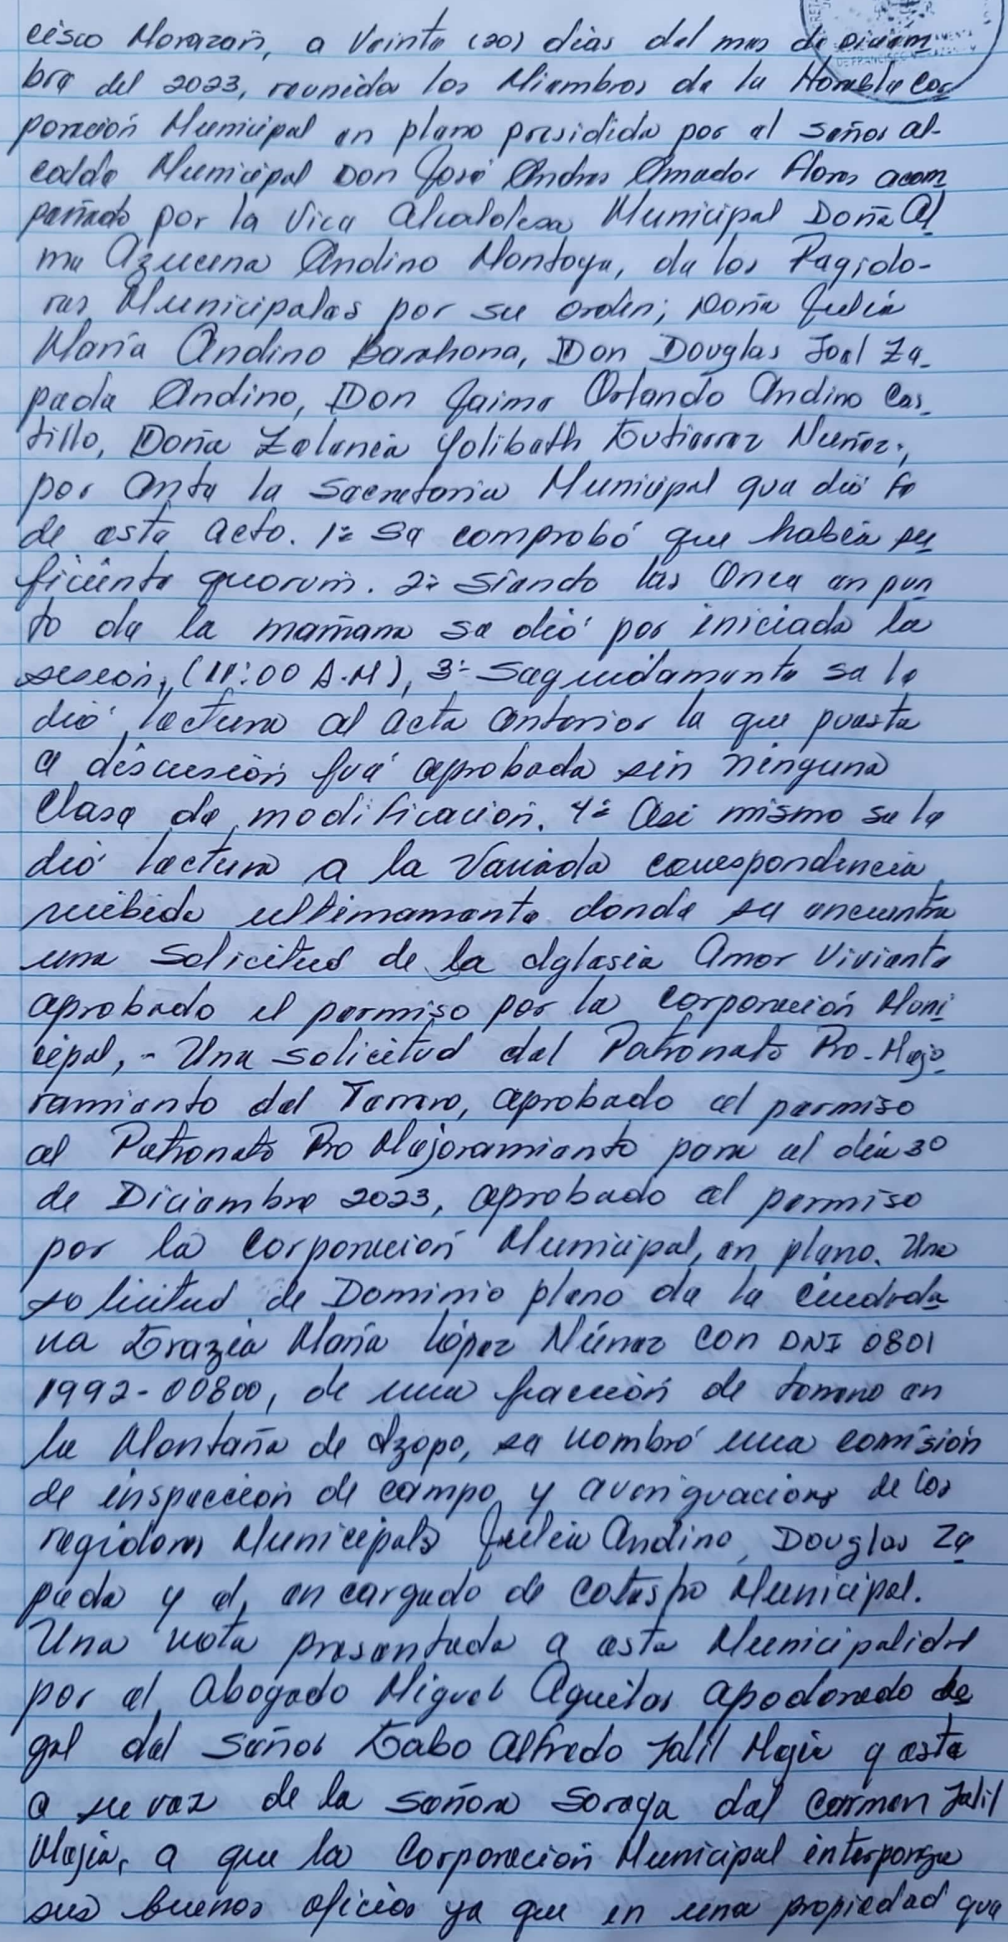 cisco Morazán, a Veinte (20) días del mes de Diciem
bre del 2023, reunidos los Miembros de la Honorable Cor
poración Municipal en pleno presidida por el señor al-
calde Municipal Don José Andres Amador Flores acom
pañado por la Vice Alcaldesa Municipal Doña Al
ma Azucena Andino Montoya, de los Regido-
res Municipales por su orden; Doña Julia
María Andino Barahona, Don Douglas Joel Ze_
peda Andino, Don Jaime Orlando Andino Cas_
tillo, Doña Yolibeth Gutierrez Nuñez,
por Ante la Secretaria Municipal que dió fe
de este acto. 1= Se comprobó que había su
ficiente quorum. 2= Siendo las Once en pun
to de la mañana se dió por iniciada la
sesión, (11:00 A.M), 3= Seguidamente se le
dió lectura al acta anterior la que puesta
a discusión fué aprobada sin ninguna
Clase de modificación. 4= Asi mismo se le
dió lectura a la Variada correspondencia
recibida ultimamente donde se encuentra
una Solicitud de la Iglesia Amor Viviente
aprobado el permiso por la Corporación Muni
cipal, - Una solicitud del Patronato Pro-Mejo
ramiento del Terrero, aprobado el permiso
al Patronato Pro Mejoramiento para el día 30
de Diciembre 2023, aprobado el permiso
por la Corporación Municipal, en pleno. Una
solicitud de Dominio pleno de la Ciudada
na Grazia María López Núñez con DNI 0801
1992-00800, de una fracción de terreno en
la Montaña de Izopo, se nombró una comisión
de inspección de campo y averiguaciones de los
regidores Municipales Julia Andino, Douglas Ze
peda y el encargado de Catastro Municipal.
Una nota presentada a esta Municipalidad
por el Abogado Miguel Aguilar apoderado le
gal del Señor Gabo Alfredo Jalil Mejia y este
a su vez de la señora Soraya del Carmen Jalil
Mejia, a que la Corporación Municipal interponga
sus buenos oficios ya que en una propiedad que